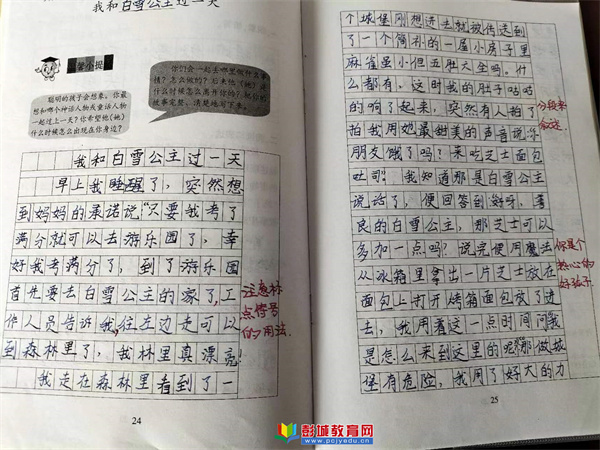 我和白雪公主过一天
聪明的孩子会想象。你最
想和哪个神话人物或童话人物
一起过上一天？你希望他(她)
什么时候怎么出现在你身边？
你们会一起去哪里做什么事
情？怎么做的？后来他(她)是
什么时候怎么离开你的？把你的
故事完整、清楚地写下来。
我和白雪公主过一天
早上我睡醒了，突然想
到妈妈的承诺说“只要我考了
满分就可以去游乐园了，幸
好我考满分了，到了游乐园
首先要去白雪公主的家了，工
作人员告诉我，往左边走可以
到森林里了，我林里真漂亮！
我走在森林里看到了一
注意标
点符号
的用法。
24
个城堡刚想进去就被传送到
了一个简朴的一屋小房子里
麻雀虽小但五脏大全吗。什
么都有，这时我的肚子咕咕
的响了起来，突然有人拍了
拍我用她最甜美的声音说“小
朋友饿了吗？来吃芝士面包
吐司”我知道那是白雪公主
说话了，便回答到好呀，善
良的白雪公主，那芝士可以
多加一点吗？说完便用魔法
从冰箱里拿出一片芝士放在
面包上打开烤箱面包放了进
去，我用着这一点时间问我
是怎么来到这里的呢那做城
堡有危险，我用了好大的力
分段来
叙述
你是个
热心的
好孩子
25
彭城教育网
www.pcjyedu.cn